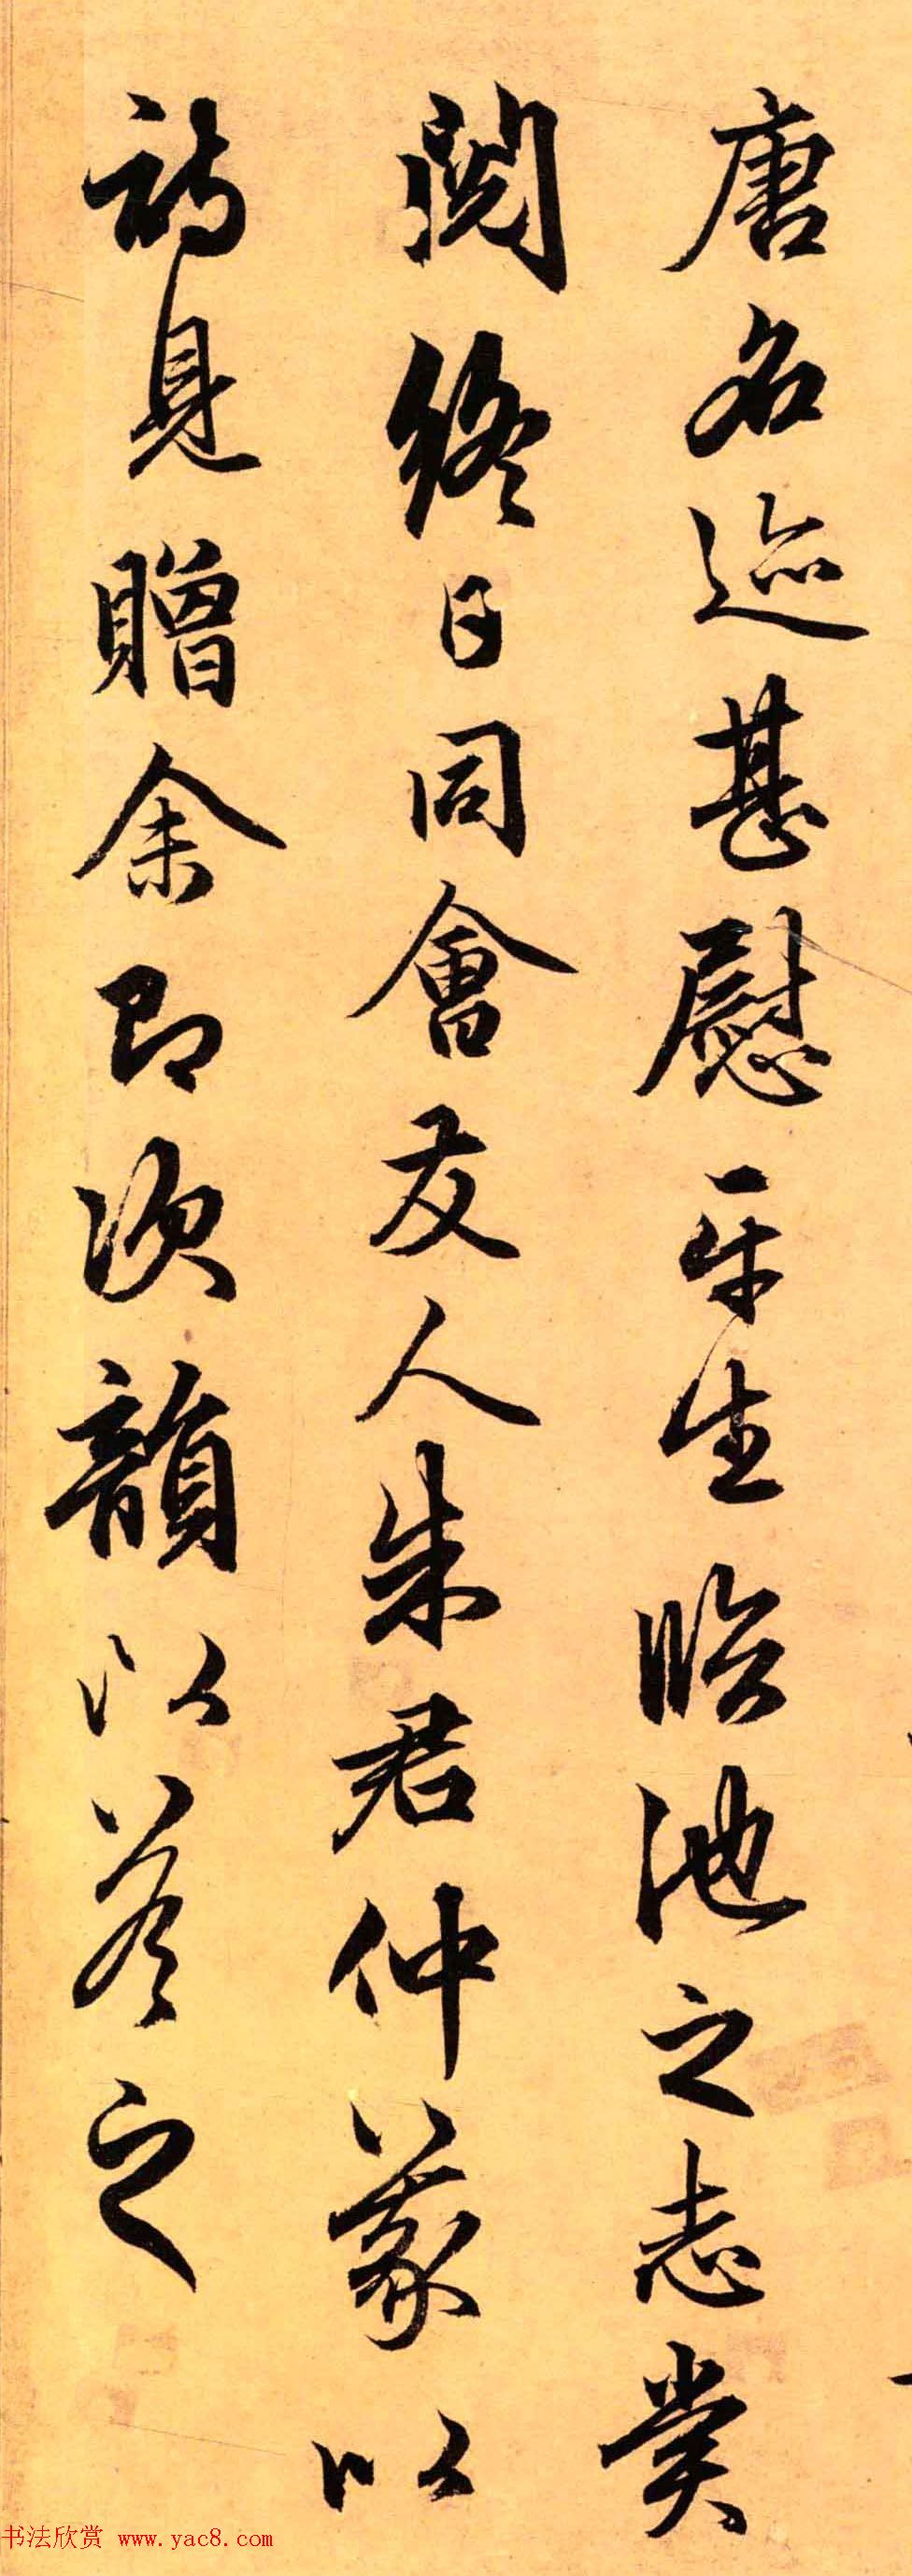 唐名迹甚慰平生临池之志赏
阅终日同會友人朱君仲蒙以
诗見贈余即次韻以答之
书法欣赏 www.yac8.com